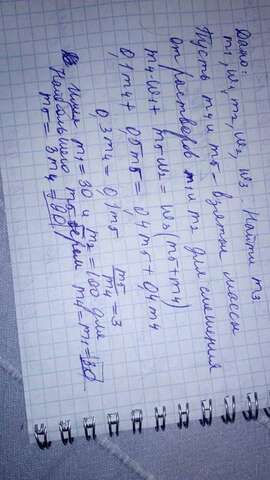 Дано:
m₁, w₁, m₂, w₂, w₃ Найти m₃.
Пусть m₄ и m₅ - взятые массы
от растворов m₁ и m₂ для смешения
m₄w₁ + m₅w₂ = w₃(m₅+m₄)
0,1m₄ + 0,5m₅ = 0,4m₅ + 0,4m₄
0,3m₄ = 0,1m₅ m₅/m₄ = 3
m₁ = 30 и m₂ = 100 для
наибольшего берем m₄ = m₁ = 30
m₅ = 3m₄ = 90